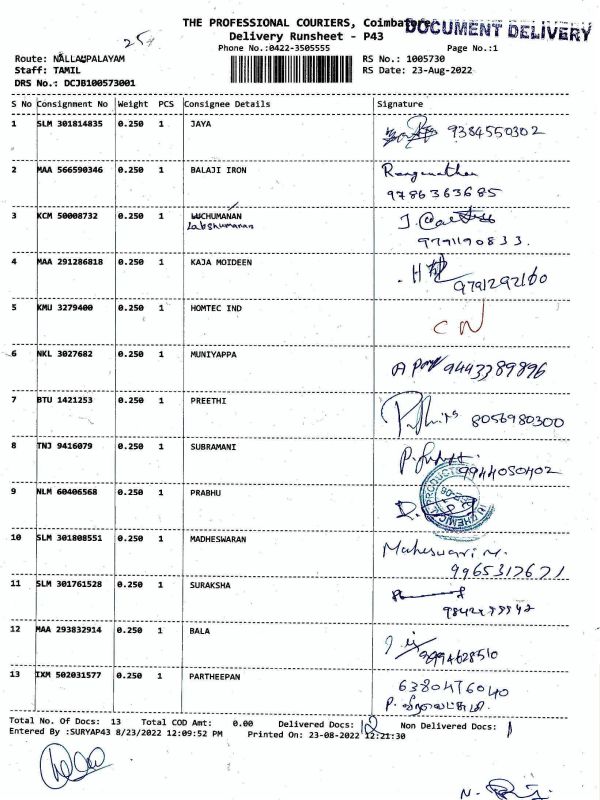 THE PROFESSIONAL COURIERS, Coimbatore
DOCUMENT DELIVERY
Delivery Runsheet - P43
254
Phone No.:0422-3505555 Page No.:1
Route: NALLAMPALAYAM RS No.: 1005730
Staff: TAMIL RS Date: 23-Aug-2022
DRS No.: DCJB100573001
S No Consignment No Weight PCS Consignee Details Signature
1 SLM 301814835 0.250 1 JAYA 9384550302
2 MAA 566590346 0.250 1 BALAJI IRON Ranganathan
9786363685
3 KCM 50008732 0.250 1 LUCHUMANAN
Lakshumanan
9791190833.
4 MAA 291286818 0.250 1 KAJA MOIDEEN
9791292160
5 KMU 3279400 0.250 1 HOMTEC IND CN
6 NKL 3027682 0.250 1 MUNIYAPPA 9443389896
7 BTU 1421253 0.250 1 PREETHI 8056980300
8 TNJ 9416079 0.250 1 SUBRAMANI
9944050402
9 NLM 60406568 0.250 1 PRABHU
10 SLM 301808551 0.250 1 MADHESWARAN Maheswari M.
9965317671
11 SLM 301761528 0.250 1 SURAKSHA
12 MAA 293832914 0.250 1 BALA
9994628510
13 IXM 502031577 0.250 1 PARTHEEPAN 6380476040
Total No. Of Docs: 13 Total COD Amt: 0.00 Delivered Docs: 12 Non Delivered Docs: 1
Entered By :SURYAP43 8/23/2022 12:09:52 PM Printed On: 23-08-2022 12:21:30